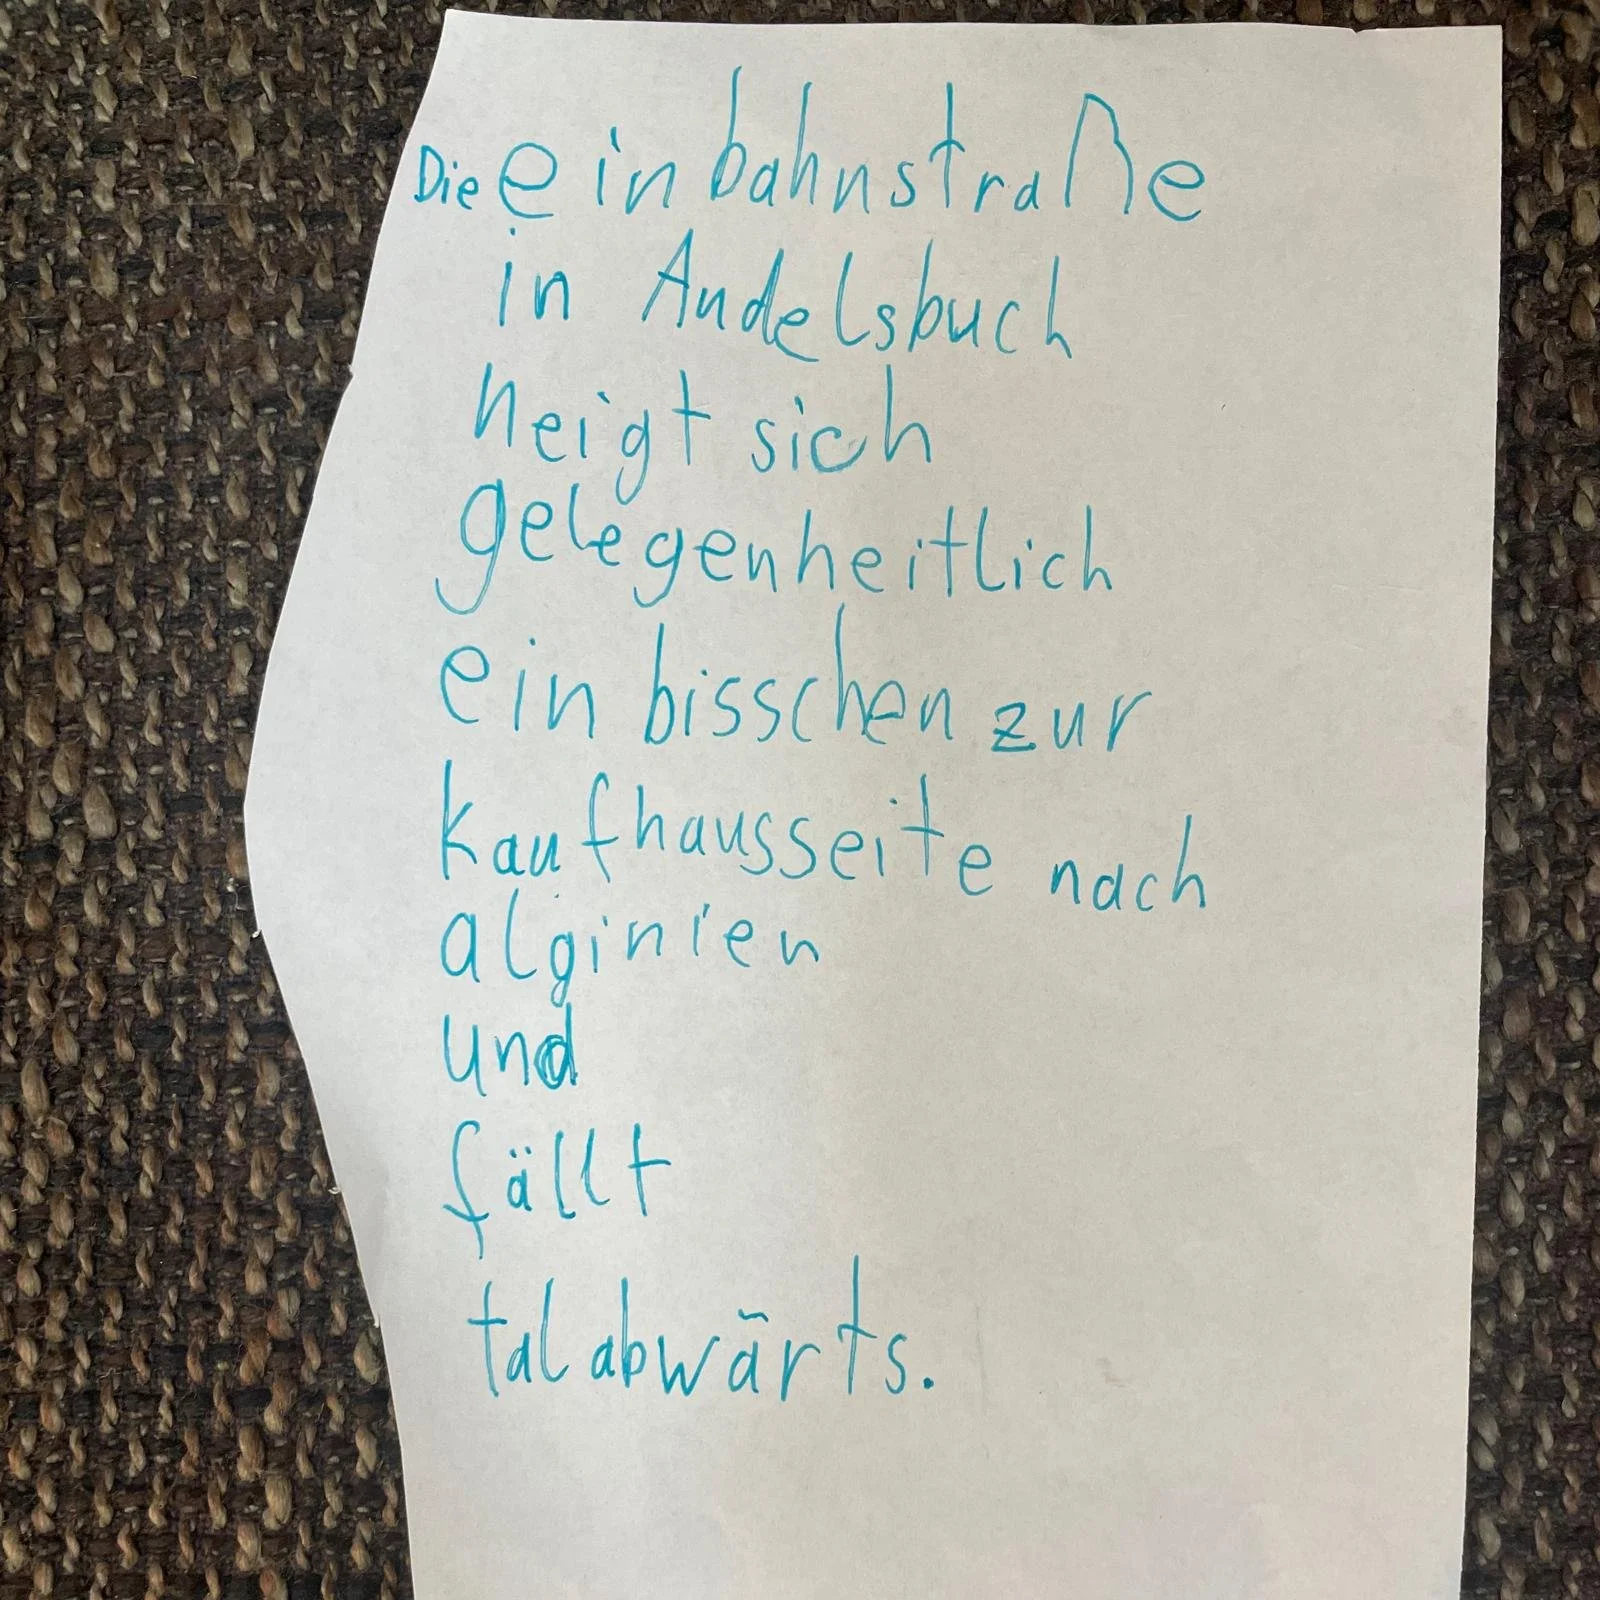 Die einbahnstraße
in Andelsbuch
neigt sich
gelegenheitlich
ein bisschen zur
kaufhausseite nach
alginien
und
fällt
talabwärts.